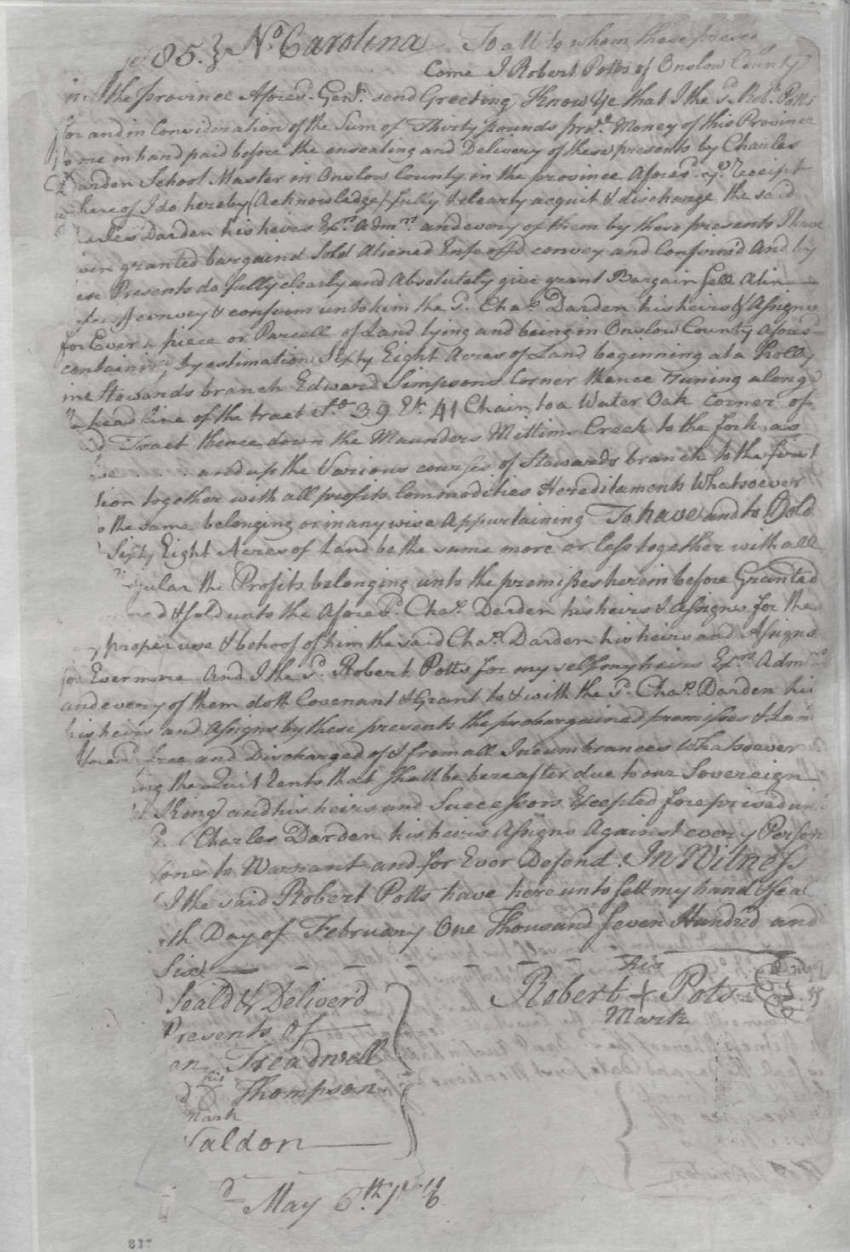 85.} No Carolina To all to whom these presen
Come I Robert Potts of Onslow County
in the province Afores.d Gent. send Greeting Know Ye that I the s.d Rob.t Potts
for and in Consideration of the Sum of Thirty pounds Money of this Province
to me in hand paid before the ensealing and Delivery of these presents by Charles
Darden School Master in Onslow County in the province Afores.d ye Receipt
here of I do hereby Acknowledge fully & clearly acquit & discharge the said
arles Darden his heirs Exrs Admrs and every of them by these presents I have
ven granted bargaind Sold Aliened Infeoffd convey and Confirmd And by
ese Presents do fully clearly and Absolutely give grant Bargain Sell Alien
convey & confirm unto him the S.d Chas Darden his heirs & Assigns
for Ever a piece or Parcell of Land lying and being in Onslow County afores
containing by estimation Sixty Eight Acres of Land beginning at a Holly
in Stewards branch Edward Simpsons Corner thence Runing along
head line of the tract So 39 Et 41 Chain to a Water Oak corner of
Tract thence down the Maunders Mitting Creek to the fork as
and up the Various courses of Stewards branch to the first
tion together with all profits Commodities Hereditaments Whatsoever
o the same belonging or in any wise Appurtaining To have and to Hold
Sixty Eight Acres of Land be the same more or less together with all
gular the Profits belonging unto the premisses herein before Granted
ned & sold unto the Afores.d Chas. Darden his heirs & Assigns for the
proper use & behoof of him the said Chas. Darden his heirs and Assigns
for Evermore And I the S.d Robert Potts for my self my heirs Exrs Admrs
and every of them doth Covenant & Grant to & with the S.d Chas. Darden his
his heirs and Assigns by these presents the probargained premisses & Lan
free and Discharged of & from all Incumbrances Whatsoever
ing the Quit Rents that shall be hereafter due to our Sovereign
King and his heirs and Successors Excepted foreprised
Charles Darden his heirs Assigns Against every Person
sons to Warrant and for Ever Defend In Witness
I the said Robert Potts have here unto sett my hand & Sea
th Day of February One Thousand Seven Hundred and
Six
Seald & Deliverd
Presents Of
his
Robert + Potts
Mark
an Treadwell
his
d Thompson
mark
Waldon
d May 6th